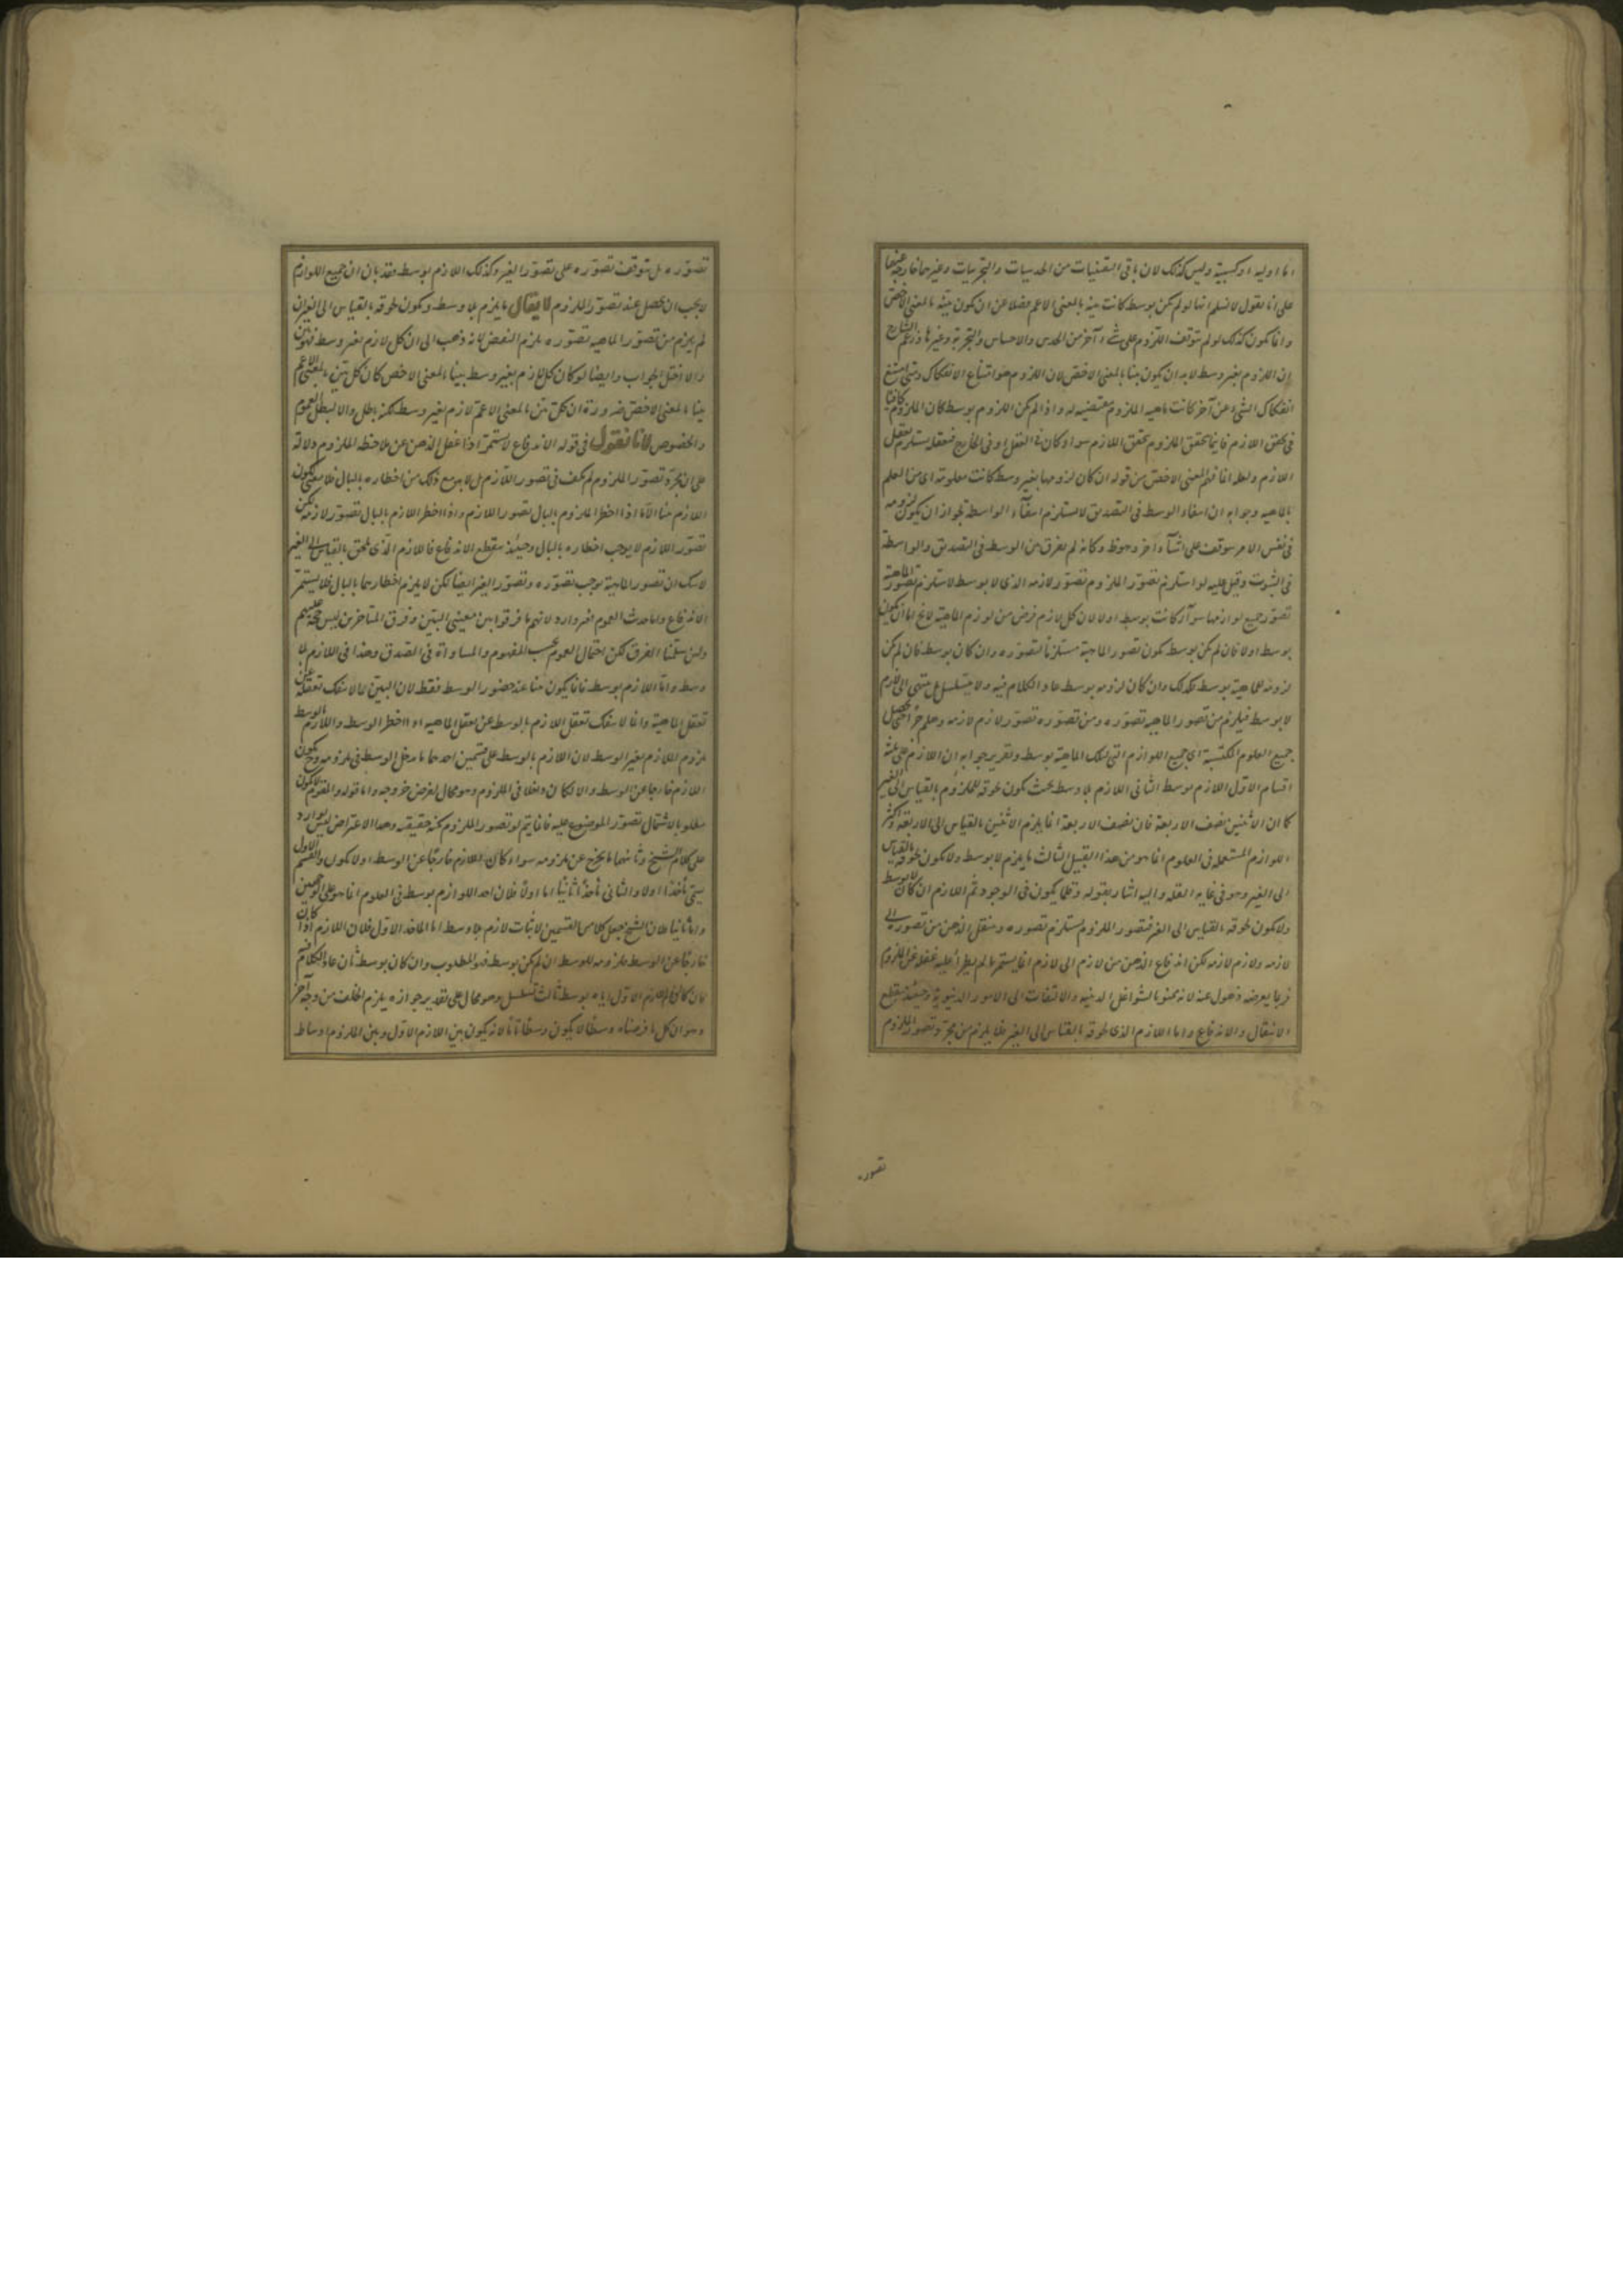 اما اولية او كسبية وليس كذلك لان باقى اليقينيات من الحدسيات والتجربيات وغيرها خارجة عنها
على انا نقول لا نسلم انها لو لم يكن بوسط كانت بينة بالمعنى الاعم فضلا عن ان يكون بينة بالمعنى الاخص
وانما يكون كذلك لو لم يتوقف اللزوم على شىء آخر من الحدس والاحساس والتجربة وغيرها وزعم الشارح
ان اللزوم بغير وسط لا بد ان يكون بينا بالمعنى الاخص لان اللزوم هو امتناع الانفكاك ومتى امتنع
انفكاك الشىء عن آخر كانت ماهية الملزوم مقتضية له واذا لم يكن اللزوم بوسط كان الملزوم كافيا
فى تحقق اللازم فاينما تحقق الملزوم تحقق اللازم سواء كان فى العقل او فى الخارج فتعقله يستلزم تعقل
اللازم ولعله انما فهم المعنى الاخص من قوله ان كان لزومها بغير وسط كانت معلومة اى من العلم
بالماهية وجوابه ان انتفاء الوسط فى التصديق لا يستلزم انتفاء الواسطة لجواز ان يكون لزومه
فى نفس الامر يتوقف على اشياء اخر وهو ظ وكانه لم يفرق بين الوسط فى التصديق والواسطة
فى الثبوت وقيل عليه لو استلزم تصور الملزوم تصور لازمه الذى لا بوسط لاستلزم تصور الماهية
تصور جميع لوازمها سواء كانت بوسط او لا لان كل لازم فرض من لوازم الماهية لا يخ اما ان يكون
بوسط او لا فان لم يكن بوسط يكون تصور الماهية مستلزما لتصوره وان كان بوسط فان لم يكن
لزومه للماهية بوسط فكذلك وان كان لزومه بوسط عاد الكلام فيه ولا يتسلسل بل ينتهى الى لازم
لا بوسط فيلزم من تصور الماهية تصوره ومن تصوره تصور لازم لازمه وهلم جرا حتى يحصل
جميع العلوم المكتسبة اى جميع اللوازم التى لتلك الماهية بوسط وتقرير جوابه ان اللازم على ثلثة
اقسام الاول اللازم بوسط الثانى اللازم بلا وسط بحيث يكون لحوقه للملزوم بالقياس الى الغير
كما ان الاثنين نصف الاربعة فان نصف الاربعة انما يلزم الاثنين بالقياس الى الاربعة واكثر
اللوازم المستعملة فى العلوم انما هو من هذا القبيل الثالث ما يلزم لا بوسط ولا يكون لحوقه بالقياس
الى الغير وهو فى غاية القلة واليه اشار بقوله وقلما يكون فى الوجود ثم اللازم ان كان لا بوسط
ولا يكون لحوقه بالقياس الى الغير فتصور الملزوم يستلزم تصوره وينتقل الذهن من تصوره الى
لازمه ولازم لازمه لكن اندفاع الذهن من لازم الى لازم انما يستمر ما لم يطرأ عليه غفلة عن الملزوم
فربما يعرضه ذهول عنه لانه ممنو بالشواغل البدنية والالتفات الى الامور الدنيوية وحينئذ ينقطع
الانتقال والاندفاع واما اللازم الذى لحوقه بالقياس الى الغير فلا يلزم من مجرد تصور الملزوم
تصوره
تصوره بل يتوقف تصوره على تصور الغير وكذلك اللازم بوسط فقد بان ان جميع اللوازم
لا يجب ان يحصل عند تصور الملزوم لا يقال ما يلزم بلا وسط ويكون لحوقه بالقياس الى الغير ان
لم يلزم من تصور الماهية تصوره يلزم النقض لانه ذهب الى ان كل لازم بغير وسط فهو بين
والا اختل الجواب وايضا لو كان كل لازم بغير وسط بينا بالمعنى الاخص كان كل بين بالمعنى الاعم
بينا بالمعنى الاخص ضرورة ان كل بين بالمعنى الاعم لازم بغير وسط لكنه باطل والا لبطل العموم
والخصوص لانا نقول فى قوله الاندفاع لا يستمر اذا غفل الذهن عن ملاحظة الملزوم دلالة
على ان مجرد تصور الملزوم لم يكف فى تصور اللازم بل لا بد مع ذلك من اخطاره بالبال فلا يكون
اللازم بينا الا اذا اخطر الملزوم بالبال تصور اللازم واذا اخطر اللازم بالبال تصور لازمه لكن
تصور اللازم لا يوجب اخطاره بالبال وحينئذ ينقطع الاندفاع فاللازم الذى يلحق بالقياس الى الغير
لا شك ان تصور الماهية يوجب تصوره وتصور الغير ايضا لكن لا يلزم اخطارهما بالبال فلا يستمر
الاندفاع واما حديث العموم فغير وارد لانهم ما فرقوا بين معنيى البين وفرق المتاخرين ليس حجة عليهم
ولئن سلمنا الفرق لكن احتمال العموم بحسب المفهوم والمساواة فى الصدق وهذا فى اللازم بلا
وسط واما اللازم بوسط فانما يكون بينا عند حضور الوسط فقط لان البين ما لا ينفك تعقله عن
تعقل الماهية وانما لا ينفك تعقل اللازم بالوسط عن تعقل الماهية اذا اخطر الوسط واللازم بالوسط
ملزوم اللازم بغير الوسط لان اللازم بالوسط على قسمين احدهما ما يدخل الوسط فى ملزومه ويكون
اللازم خارجا عن الوسط والا لكان داخلا فى الملزوم وهو محال لفرض خروجه واما قوله والمقوم لا يكون
مطلوبا لاشتمال تصور الموضوع عليه فانما يتم لو تصور الملزوم بكنه حقيقته وهذا الاعتراض ليس بوارد
على كلام الشيخ وثانيهما ما يخرج عن ملزومه سواء كان اللازم خارجا عن الوسط او لا يكون والقسم الاول
يسمى مأخذا اولا والثانى مأخذا ثانيا اما اولا فلان احد اللوازم بوسط فى العلوم انما هو على الوجهين
واما ثانيا فلان الشيخ جعل كلا من القسمين لاثبات لازم بلا وسط اما المأخذ الاول فلان اللازم اذا كان
خارجا عن الوسط فلزومه للوسط ان لم يكن بوسط فهو المطلوب وان كان بوسط ثان عاد الكلام فيه
فان كان لزوم الاول اياه بوسط ثالث تسلسل وهو محال على تقدير جوازه يلزم الخلف من وجه آخر
وهو ان كل ما فرضناه وسطا لا يكون وسطا تاما لانه يكون بين اللازم الاول وبين الملزوم اوساط